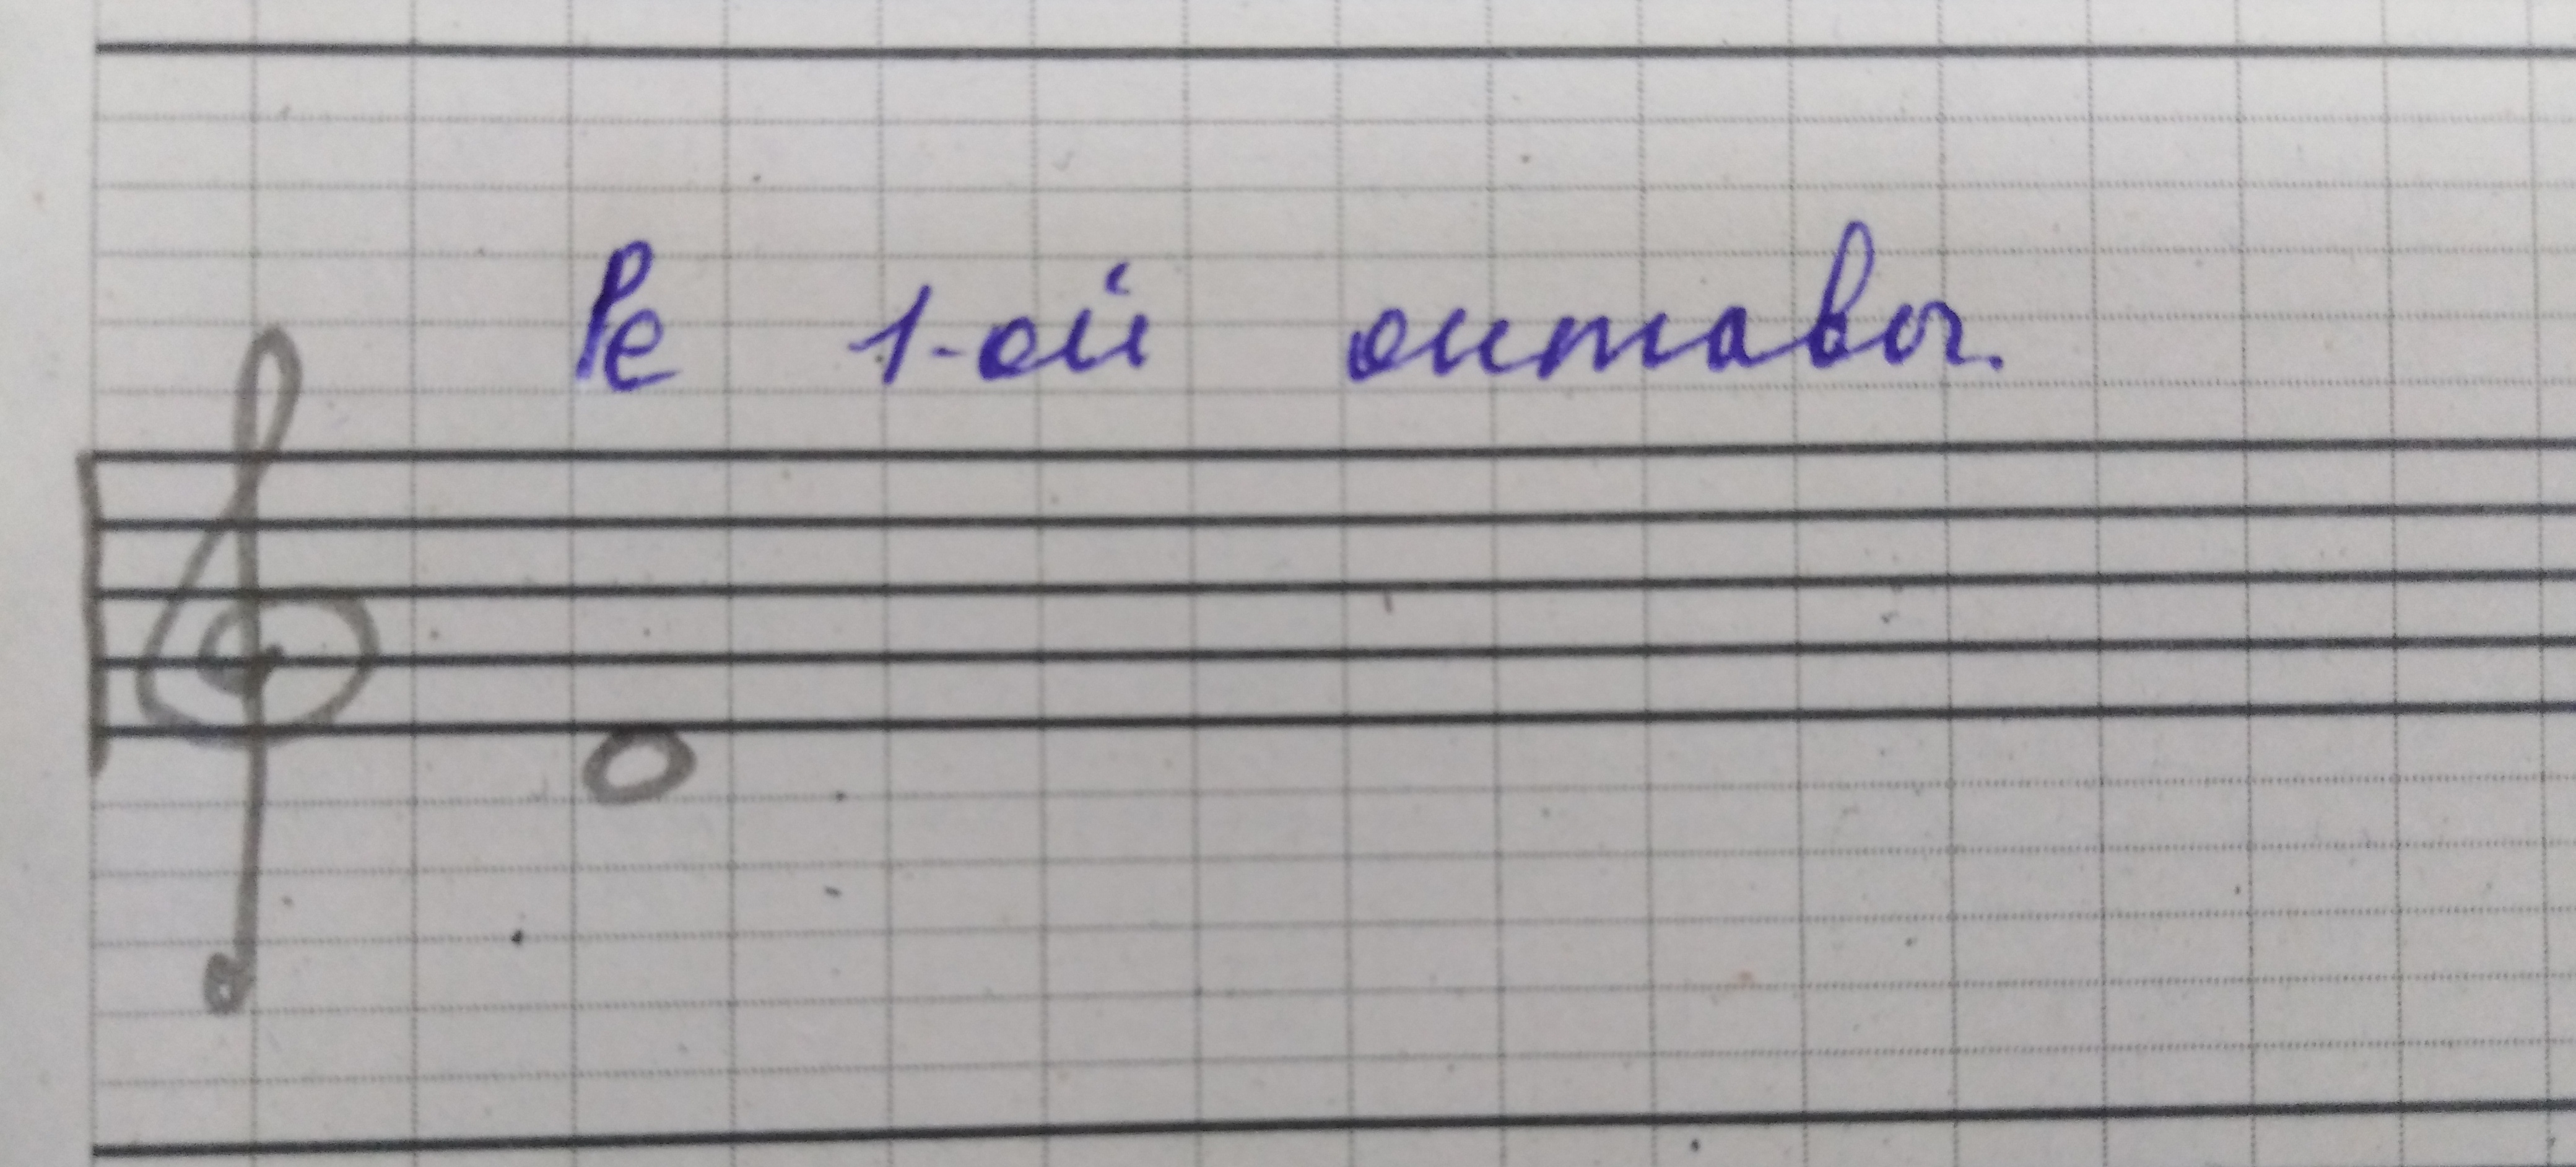 Ре 1-ой октавы.